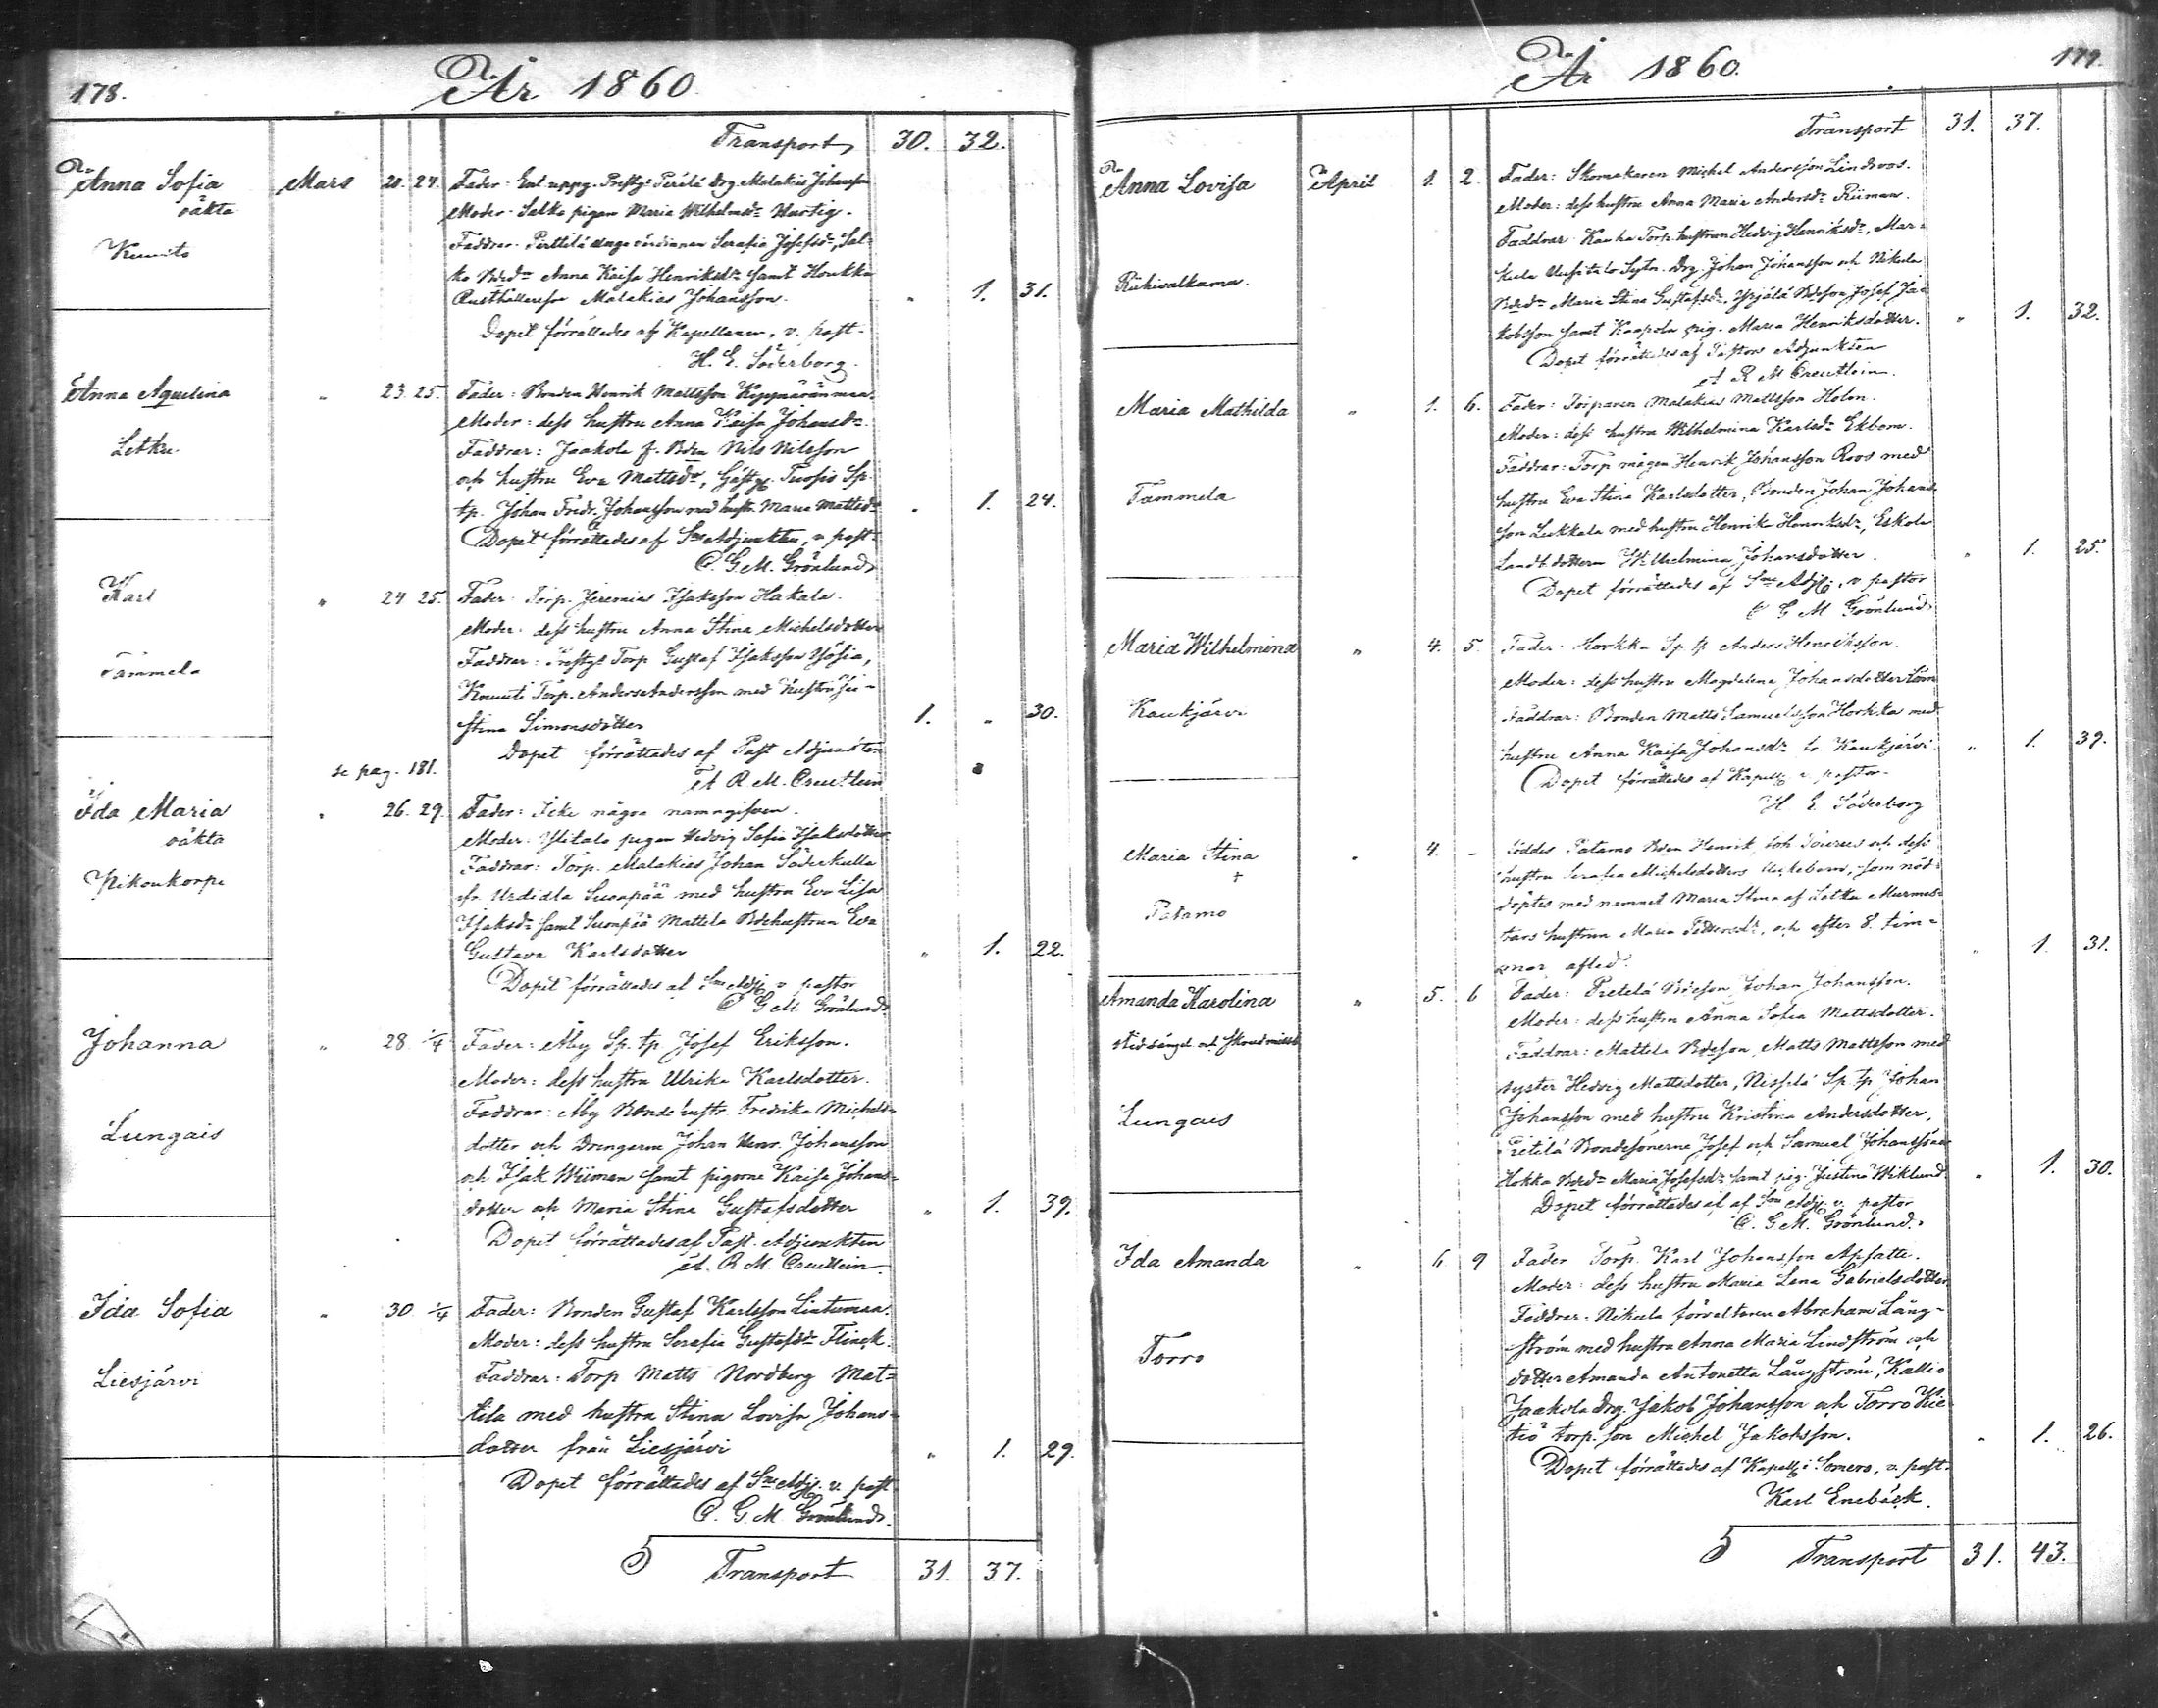 178.
År 1860
Transport 30. 32.
Anna Sofia Mars 20. 24. Fader: Enl. uppg. Prestg. Perälä Drg Malakias Johansson
oäkta Moder: Salko pigan Maria Wilhelmsdr Hurtig.
Kuusto Faddrar: Perttilä unga värdinnan Serafia Josefsdr, Sal-
ko Bdr Anna Kaisa Henriksdr samt Houkka
Rusthållaresson Malakias Johansson. " 1. 31.
Dopet förrättades af Kapellanen, v. past.
H. E. Söderborg.
Anna Aqvelina " 23. 25. Fader: Bonden Henrik Mattsson
Moder: dess hustru Anna Kaisa Johansdr.
Letku Faddrar: Jaakola f. Bden Nils Nilsson
och hustru Eva Mattsdr, Gästg. Sp.
tp. Johan Fredr. Johansson med hustr. Maria Mattsdr " 1. 24.
Dopet förrättades af Sne Adjunkten, v past.
C. G. M. Grönlund
Karl " 24 25. Fader: Torp. Jeremias Isaksson Hakala.
Moder: dess hustru Anna Stina Michelsdotter
Tammela Faddrar: Prestgs Torp Gustaf Isaksson
Knuuti Torp. Anders Andersson med hustru Ju-
stina Simonsdotter 1. " 30.
Dopet förrättades af Past Adjunkten
A R M. Creutlein
se pag. 181.
Ida Maria " 26. 29. Fader: Icke någon namngifven.
oäkta Moder: Ylitalo pigan Hedvig Sofia Isaksdotter
Pikonkorpi Faddrar: Torp. Malakias Johan Söderkulla
fr. Urdiala Suonpää med hustru Eva Lisa
Isaksdr samt Suonpää Mattila Bdehustrun Eva
Gustava Karlsdotter " 1. 22.
Dopet förrättades af Sne Adj. v pastor
C G M Grönlund
Johanna " 28 1/4 Fader: Åby Sp. tp Josef Eriksson.
Moder: dess hustru Ulrika Karlsdotter.
Lungais Faddrar: Åby Bonde hustr. Fredrika Michels-
dotter och Drengarne Johan Henr. Johansson
och Isak Wiiman samt pigorne Kaisa Johans-
dotter och Maria Stina Gustafsdotter " 1. 39.
Dopet förrättades af Past. Adjunkten
A. R M. Creutlein
Ida Sofia " 30 1/4 Fader: Bonden Gustaf Karlsson Lintumaa.
Moder: dess hustru Serafia Gustafsdr Flinck.
Liesjärvi Faddrar: Torp Matts Nordberg Mat-
tila med hustru Stina Lovisa Johans-
dotter från Liesjärvi " 1. 29.
Dopet förrättades af Sne Adj. v. past
C. G. M Grönlund.
5 Transport 31. 37.
År 1860. 179.
Transport 31. 37.
Anna Lovisa April 1. 2. Fader: Skomakaren Michel Andersson Lindroos.
Moder: dess hustru Anna Maria Andersdr Riiman.
Faddrar: Kauha Torp. hustrun Hedvig Henriksdr, Mar-
Riihivalkama. kula Uusitalo Sytn. Drg. Johan Johansson och Nikula
Bdr Maria Stina Gustafsdr, Yrjälä Bdeson Josef Ja-
kobsson samt Kaapola pig. Maria Henriksdotter. " 1. 32.
Dopet förrättades af Pastors Adjunkten
A R M Creutlein.
Maria Mathilda " 1. 6. Fader: Torparen Malakias Mattsson Holm.
Moder: dess hustru Wilhelmina Karlsdr Ekbom.
Faddrar: Torp mågen Henrik Johansson Roos med
Tammela hustru Eva Stina Karlsdotter, Bonden Johan Johans-
son Lukkala med hustru Henrika Henriksdr, Eskola
Landb. dottern Wilhelmina Johansdotter. " 1. 25.
Dopet förrättades af Sne Adj., v pastor
C G M Grönlund
Maria Wilhelmina " 4. 5. Fader: Horkka Sp. tp Anders Henriksson.
Moder: dess hustru Magdalena Johansdotter
Kaukjärvi Faddrar: Bonden Matts Samuelsson Horkka med
hustru Anna Kaisa Johansdr fr. Kaukjärvi " 1. 39.
Dopet förrättades af Kapell. v. pastor.
H E Söderborg
Maria Stina " 4. - Föddes Patamo Bden Henrik Joh och dess
† hustru Serafia Michelsdotters flickebarn, som nöd-
Patamo döptes med namnet Maria Stina af Letku Murmes-
tars hustrun Maria Pettersdr, och efter 8. tim-
mar afled. " 1. 31.
Amanda Karolina " 5. 6 Fader: Pietilä Bdeson Johan Johansson.
Moder: dess hustru Anna Sofia Mattsdotter.
Faddrar: Mattila Bdeson Matts Mattsson med
syster Hedvig Mattsdotter, Nissilä Sp. tp Johan
Lungais Johansson med hustru Kristina Andersdotter,
Pietilä Bondesönerne Josef och Samuel Johanssöner
Hokka Bdr Maria Josefsdr samt pig. Justina Wiklund " 1. 30.
Dopet förrättades af af Sne Adj. v. pastor
C. G. M. Grönlund.
Ida Amanda " 6 9 Fader Torp. Karl Johansson Apsatti.
Moder: dess hustru Maria Lena Gabrielsdotter
Faddrar: Nikula förvaltaren Abraham Lång-
ström med hustru Anna Maria Lindström och
Torro dotter Amanda Antonetta Långström, Kallio
Jaakola Drg. Jakob Johansson och Torro Kie-
tiö torp. son Michel Jakobsson. " 1. 26.
Dopet förrättades af Kapell. i Somero, v. past.
Karl Enebäck.
5 Transport 31. 43.